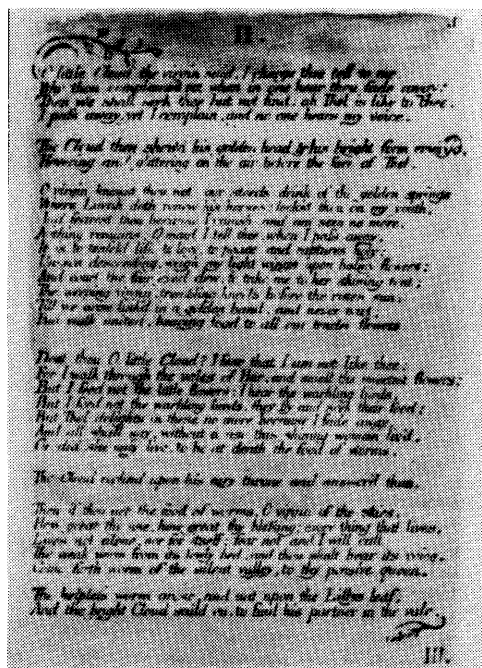 II.
O little Cloud the virgin said, I charge thee tell to me
Why thou complainest not when in one hour thou fade away:
Then we shall seek thee but not find; ah Thel is like to thee.
I pass away, yet I complain, and no one hears my voice.
The Cloud then shew'd his golden head & his bright form emerg'd,
Hovering and glittering on the air before the face of Thel.
O virgin know'st thou not our steeds drink of the golden springs
Where Luvah doth renew his horses: look'st thou on my youth,
And fearest thou because I vanish and am seen no more.
Nothing remains; O maid I tell thee when I pass away,
It is to tenfold life, to love, to peace, and raptures holy:
Unseen descending, weigh my light wings upon balmy flowers:
And court the fair eyed dew, to take me to her shining tent;
The weeping virgin, trembling kneels before the risen sun,
Till we arise link'd in a golden band, and never part;
But walk united, bearing food to all our tender flowers
Dost thou O little Cloud? I fear that I am not like thee;
For I walk through the vales of Har, and smell the sweetest flowers;
But I feed not the little flowers: I hear the warbling birds,
But I feed not the warbling birds, they fly and seek their food;
But Thel delights in these no more because I fade away,
And all shall say, without a use this shining woman liv'd,
Or did she only live, to be at death the food of worms.
The Cloud reclind upon his airy throne and answer'd thus.
Then if thou art the food of worms, O virgin of the skies,
How great thy use, how great thy blessing; every thing that lives,
Lives not alone, nor for itself: fear not and I will call
The weak worm from its lowly bed, and thou shalt hear its voice.
Come forth worm of the silent valley, to thy pensive queen.
The helpless worm arose, and sat upon the Lillys leaf,
And the bright Cloud saild on, to find his partner in the vale.
III.